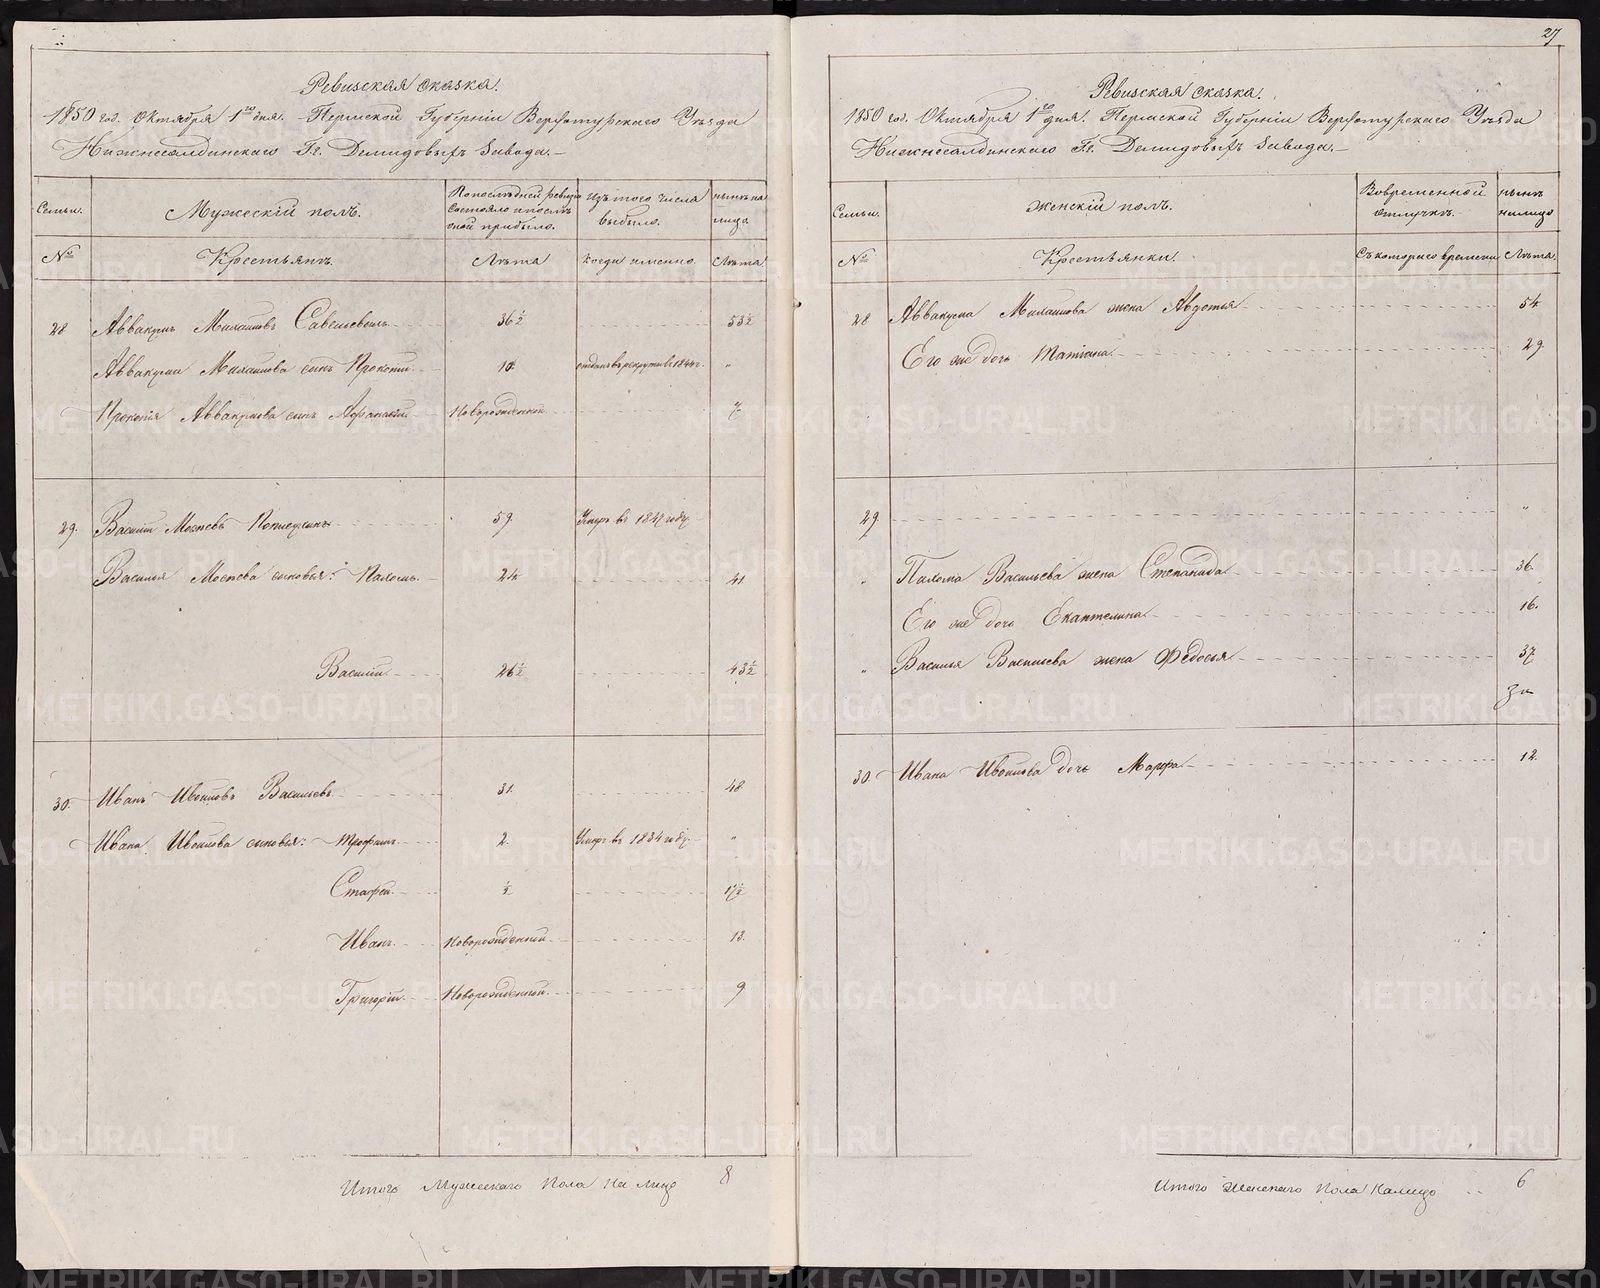 27
Ревизская сказка.
1850 год. Октября 1го дня. Пермской Губернiи Верхотурскаго Уѣзда
Нижнесалдинскаго Гг. Демидовыхъ Завода.
Семьи. Мужескiй полъ. По последней ревизiи состояло и послѣ оной прибыло. Изъ того числа выбыло. нынѣ на лицо.
№ Крестьянъ. Лѣта когда именно. Лѣта
28 Аввакумъ Михаиловъ Савельевъ 36½ 53½
Аввакума Михаилова сынъ Прокопiй 10 отданъ въ рекруты въ 1844 г. "
Прокопiя Аввакумова сынъ Афанасiй Новорожденной 7
29. Василiй Моsеевъ 59 Умеръ въ 1847 году.
Василья сыновья: Пахомъ 24 41
Василiй 26½ 43½
30. Иванъ Ивойловъ Васильевъ 31. 48
Ивана Ивойлова сыновья: Трофимъ 2. Умеръ въ 1834 году. "
Стафей ½ 17½
Иванъ Новорожденной 13.
Григорiй Новорожденной 9
Итого Мужескаго Пола на лицо 8
Ревизская сказка.
1850 год. Октября 1го дня. Пермской Губернiи Верхотурскаго Уѣзда
Нижнесалдинскаго Гг. Демидовыхъ Завода.
Семьи. Женскiй полъ. Во временной отлучкѣ. нынѣ налицо
№ Крестьянки. Съ котораго времени Лѣта.
28 Аввакума Михаилова жена Авдотья 54
Его же дочь Татiана 29.
29. "
" Пахома Васильева жена Степанида 36.
Его же дочь Екатерина 16.
" Василья Васильева жена Федосья 37
30. Ивана Ивойлова дочь Марфа 12.
Итого Женскаго Пола налицо 6
METRIKI.GASO-URAL.RU